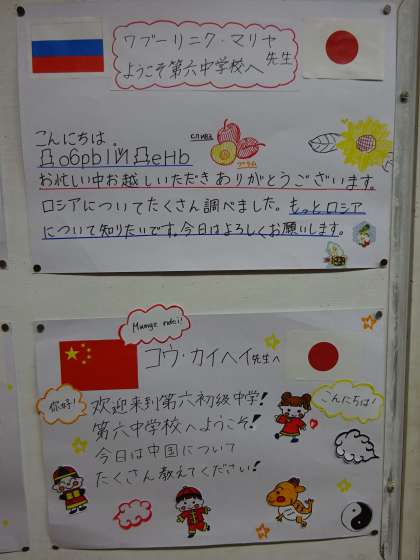 ワブーリニク・マリヤ先生
ようこそ第六中学校へ
こんにちは。
Добрый День
слива
プラム
お忙しい中お越しいただきありがとうございます。
ロシアについてたくさん調べました。もっとロシア
について知りたいです。今日はよろしくお願いします。
コウ・カイヘイ先生へ
你好!
こんにちは!
欢迎来到第六初级中学!
第六中学校へようこそ!
今日は中国について
たくさん教えてください!